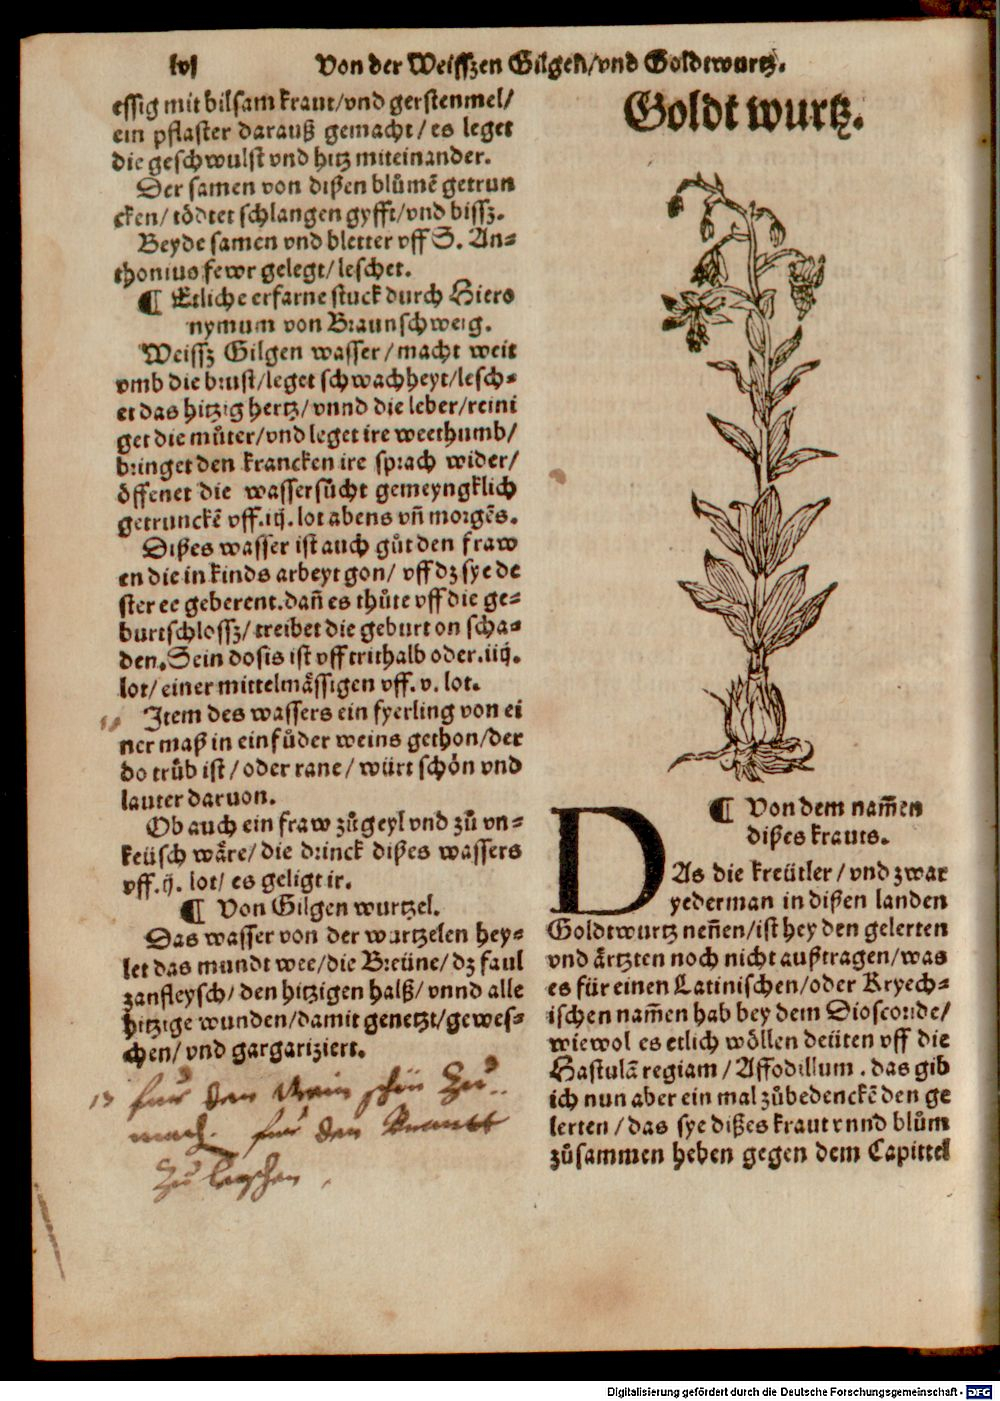 lvj Von der Weissen Gilgen/vnd Goldtwurtz.
essig mit bilsam kraut/vnd gerstenmel/
ein pflaster darauß gemacht/es leget
die geschwulst vnd hitz miteinander.
Der samen von dißen blůmē getrun
cken/tödtet schlangen gyfft/vnd bissz.
Beyde samen vnd bletter vff S. An=
thonius fewr gelegt/leschet.
¶ Etliche erfarne stuck durch Hiero
nymum von Braunschweig.
Weissz Gilgen wasser/macht weit
vmb die brust/leget schwachheyt/lesch=
et das hitzig hertz/vnnd die leber/reini
get die můter/vnd leget ire weethumb/
bringet den krancken ire sprach wider/
öffenet die wassersücht gemeyngklich
getrunckē vff.iij.lot abens vñ morgēs.
Dißes wasser ist auch gůt den fraw
en die in kinds arbeyt gon/ vff dz sye de
ster ee geberent.dañ es thůte vff die ge=
burtschlossz/treibet die geburt on scha=
den.Sein dosis ist vff trithalb oder.iiij.
lot/einer mittelmässigen vff.v.lot.
Item des wassers ein fyerling von ei
ner maß in ein fůder weins gethon/der
do trüb ist/oder rane/würt schön vnd
lauter daruon.
Ob auch ein fraw zůgeyl vnd zů vn=
keüsch wäre/die drinck dißes wassers
vff.ij. lot/es geligt ir.
¶ Von Gilgen wurtzel.
Das wasser von der wurtzelen hey=
let das mundt wee/die Breüne/dz faul
zanfleysch/den hitzigen halß/vnnd alle
hitzige wunden/damit genetzt/gewes=
chen/vnd gargariziert.
fur den Wein schön zu
mach. fur den Brantt
zu leschen
Goldt wurtz.
¶ Von dem nam̄en
dißes krauts.
DAs die kreütler/vnd zwar
yederman in dißen landen
Goldtwurtz neñen/ist bey den gelerten
vnd ärtzten noch nicht außtragen/was
es für einen Latinischen/oder Kryech=
ischen nam̄en hab bey dem Dioscoride/
wiewol es etlich wöllen deüten vff die
Hastulā regiam/Affodillum.das gib
ich nun aber ein mal zůbedenckē den ge
lerten/das sye dißes kraut vnnd blům
zůsammen heben gegen dem Capittel
Digitalisierung gefördert durch die Deutsche Forschungsgemeinschaft - DFG